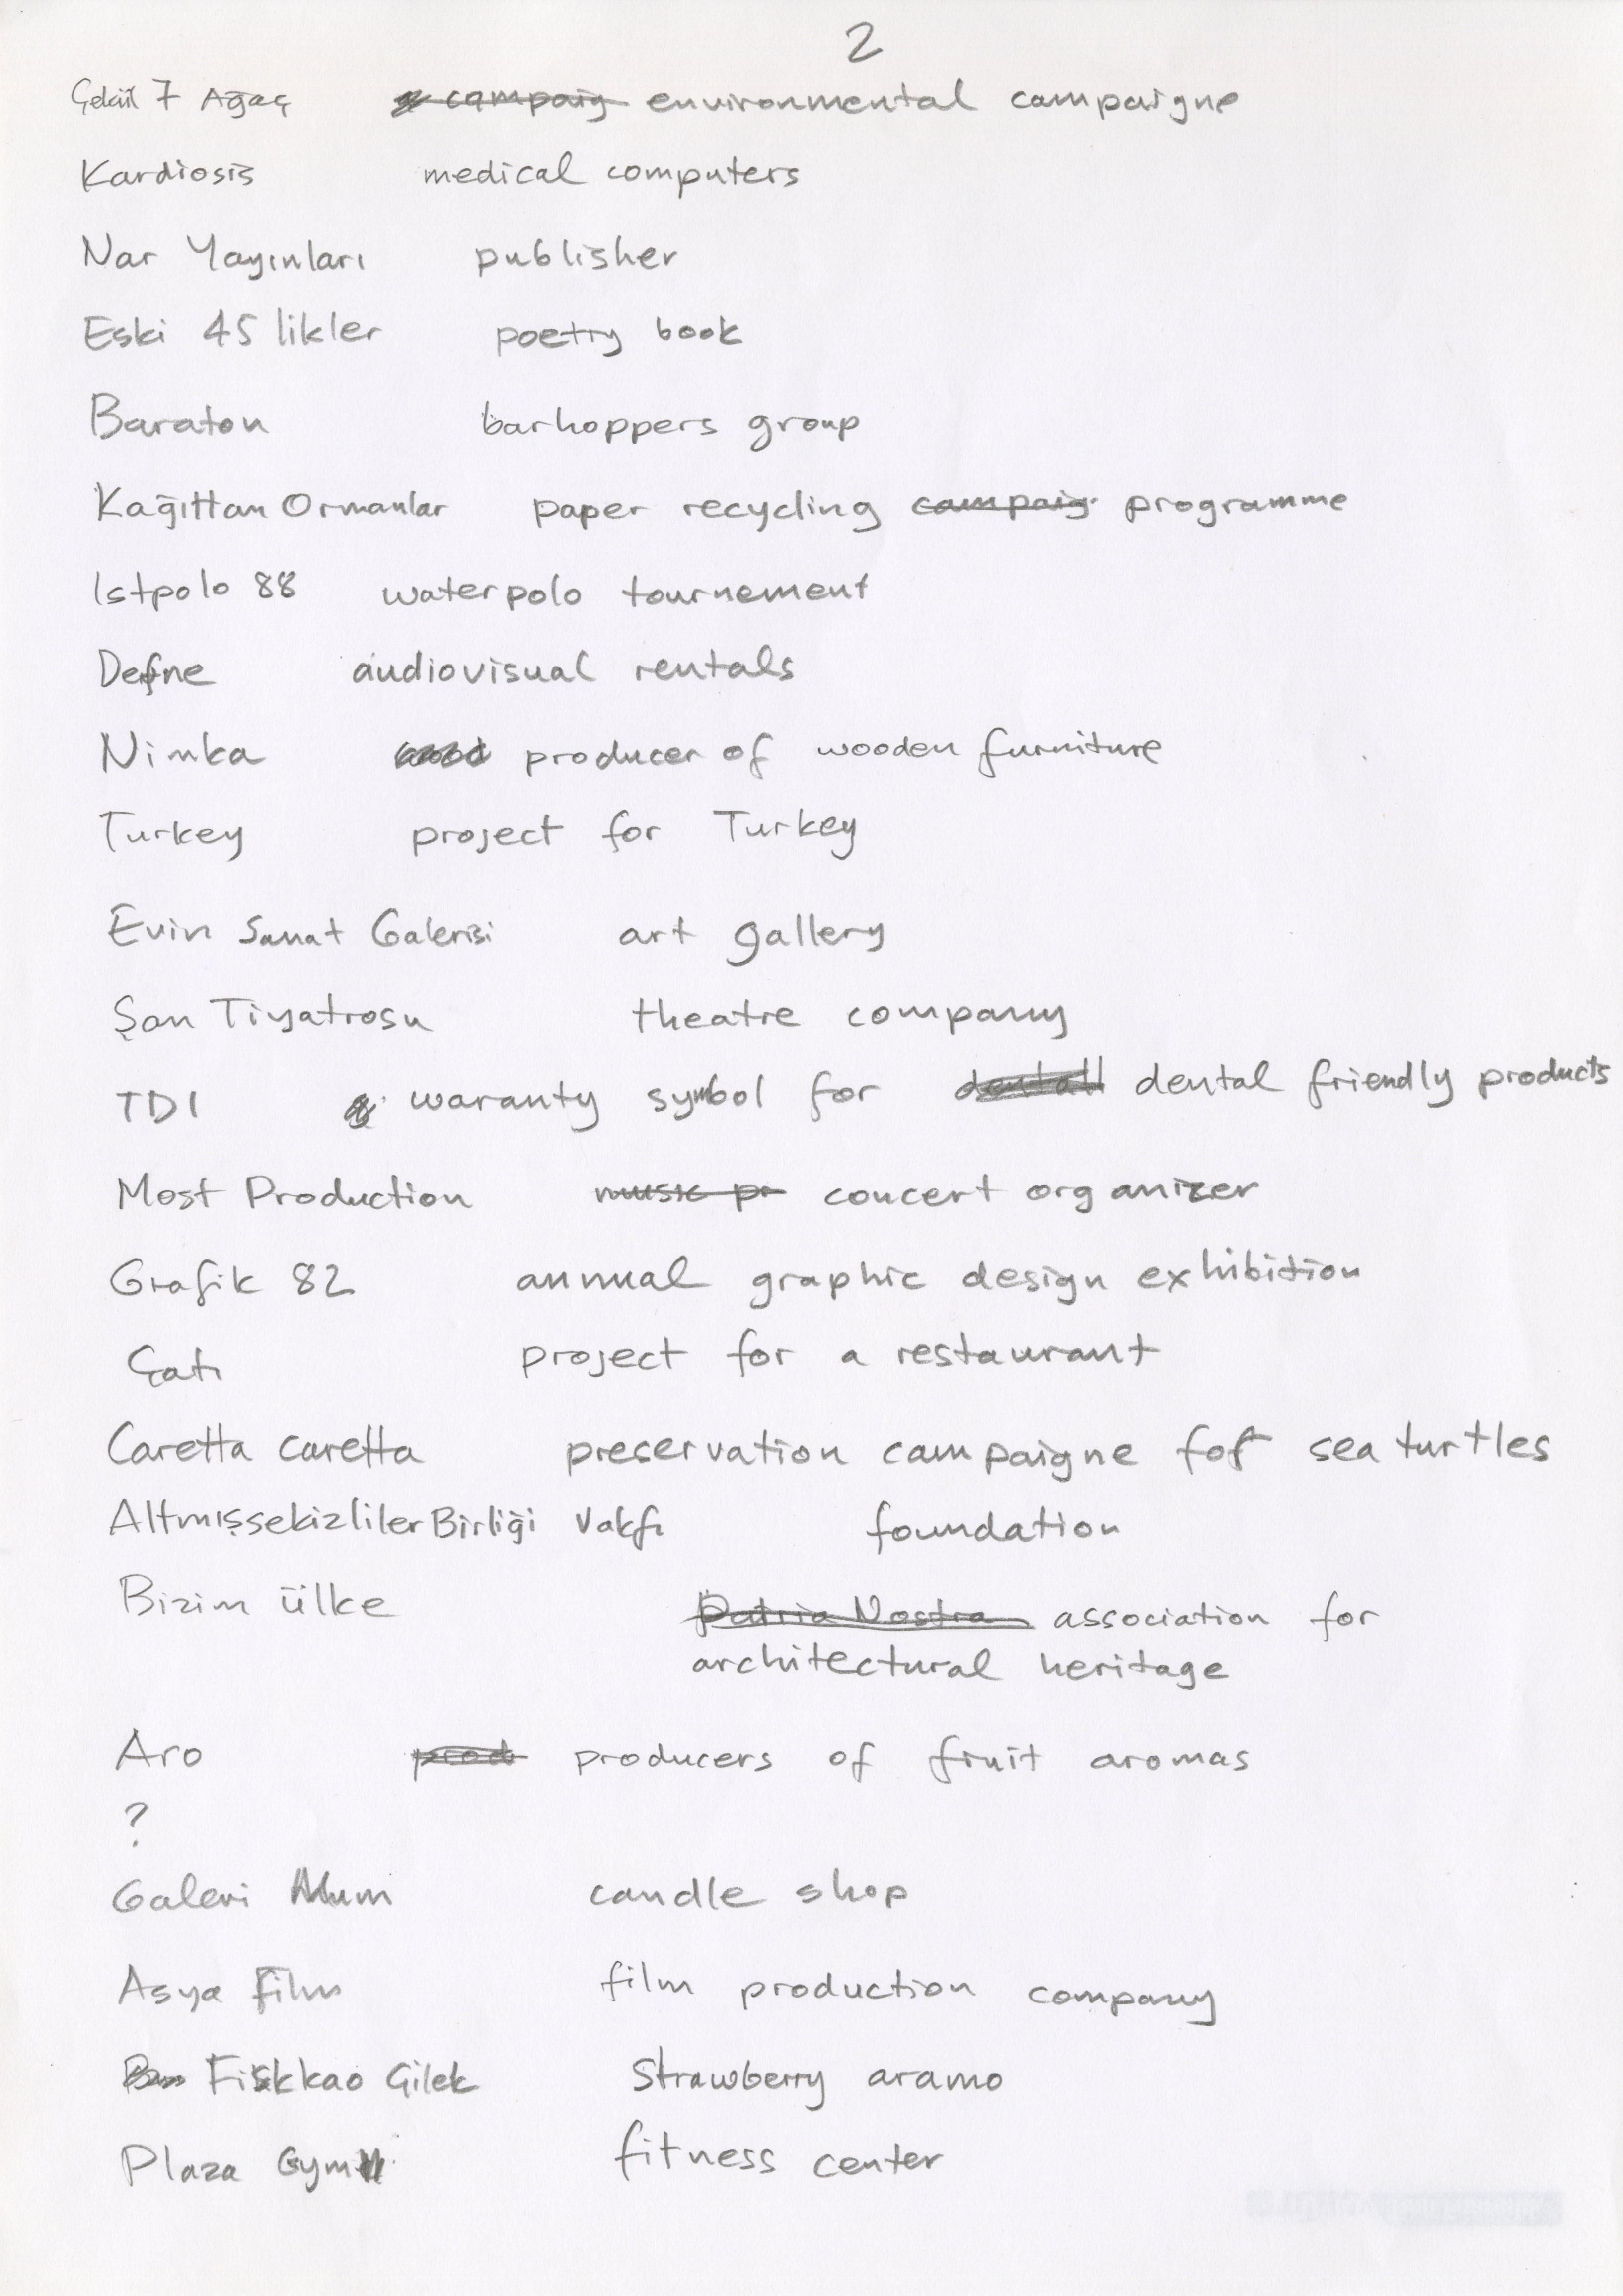 2
Çekül 7 Ağaç campaig environmental campaigne
Kardiosis medical computers
Nar Yayınları publisher
Eski 45 likler poetry book
Baraton barhoppers group
Kağıttan Ormanlar paper recycling campaig programme
Istpolo 88 waterpolo tournement
Defne audiovisual rentals
Nimka wood producer of wooden furniture
Turkey project for Turkey
Evin Sanat Galerisi art gallery
Şan Tiyatrosu theatre company
TDI waranty symbol for dental dental friendly products
Most Production music pr concert organizer
Grafik 82 annual graphic design exhibition
Çatı project for a restaurant
Caretta caretta preservation campaigne for sea turtles
Altmışsekizliler Birliği Vakfı foundation
Bizim ülke Patria Nostra association for
architectural heritage
Aro prod producers of fruit aromas
?
Galeri Mum candle shop
Asya Film film production company
Fiskkao Çilek Strawberry aramo
Plaza Gym fitness center